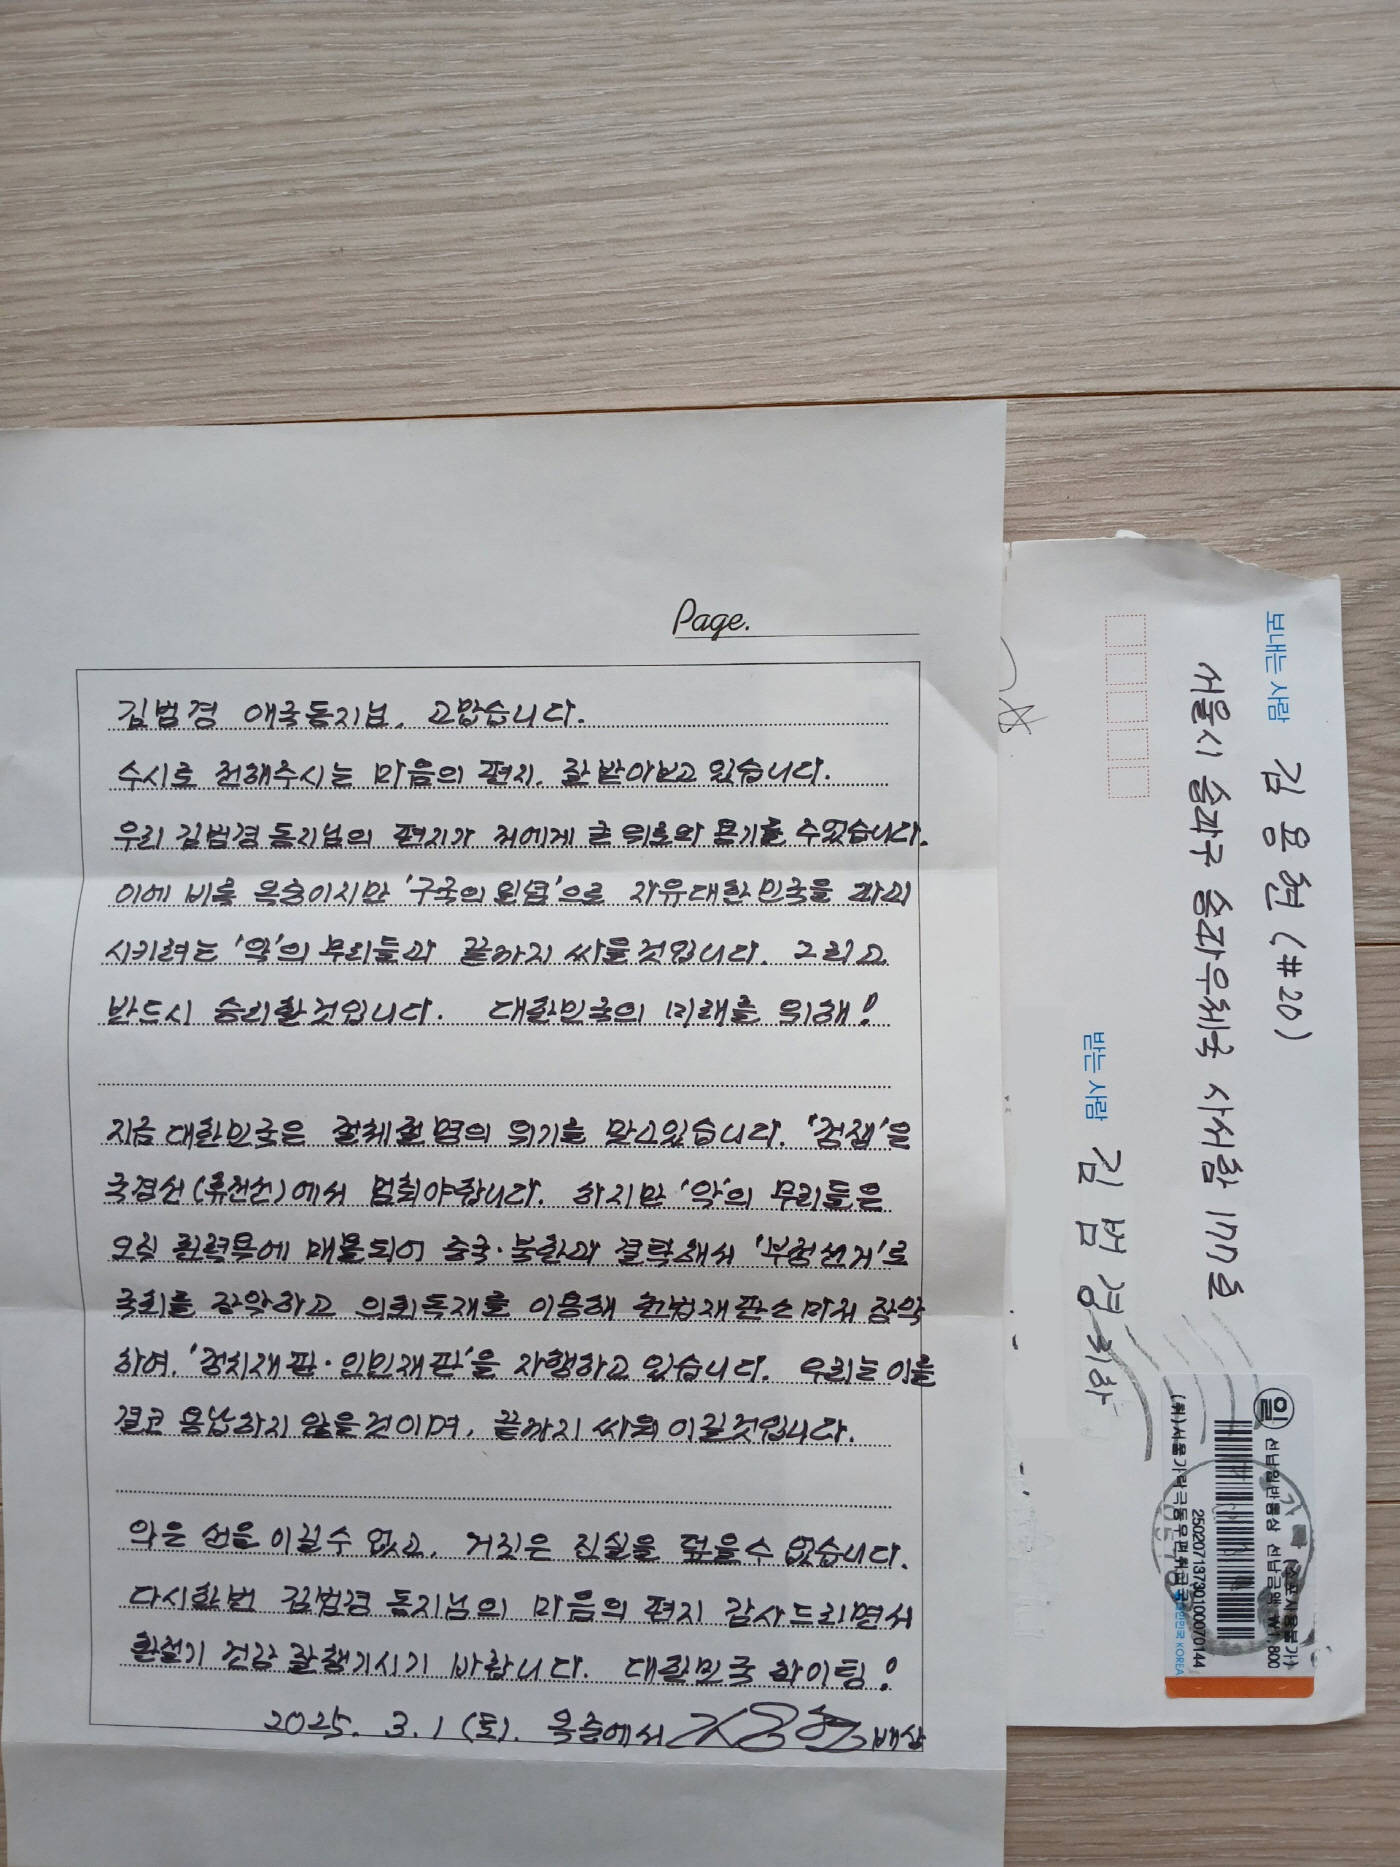 Page.
김범경 애국동지님, 고맙습니다.
수시로 전해주시는 마음의 편지, 잘 받아보고 있습니다.
우리 김범경 동지님의 편지가 저에게 큰 위로와 용기를 주었습니다.
이에 비록 옥중이지만 '구국의 일념'으로 자유대한민국을 파괴
시키려는 '악'의 무리들과 끝까지 싸울것입니다. 그리고
반드시 승리할것입니다. 대한민국의 미래를 위해!
지금 대한민국은 절체절명의 위기를 맞고있습니다. '정쟁'은
국경선(휴전선)에서 멈춰야합니다. 하지만 '악'의 무리들은
오직 권력욕에 매몰되어 중국·북한과 결탁해서 '부정선거'로
국회를 장악하고 의회독재를 이용해 헌법재판소마저 장악
하여, '정치재판·인민재판'을 자행하고 있습니다. 우리는 이를
결코 용납하지 않을것이며, 끝까지 싸워 이길것입니다.
악은 선을 이길수 없고, 거짓은 진실을 덮을수 없습니다.
다시한번 김범경 동지님의 마음의 편지 감사드리면서
환절기 건강 잘챙기시기 바랍니다. 대한민국 화이팅!
2025. 3. 1 (토). 옥중에서 김용현 배상
보내는 사람
김용현 (#20)
서울시 송파구 송파우체국 사서함 177호
받는 사람
김범경 귀하
일 선납일반통상 선납금액 ₩1,800
25020713730100070144
대한민국 KOREA